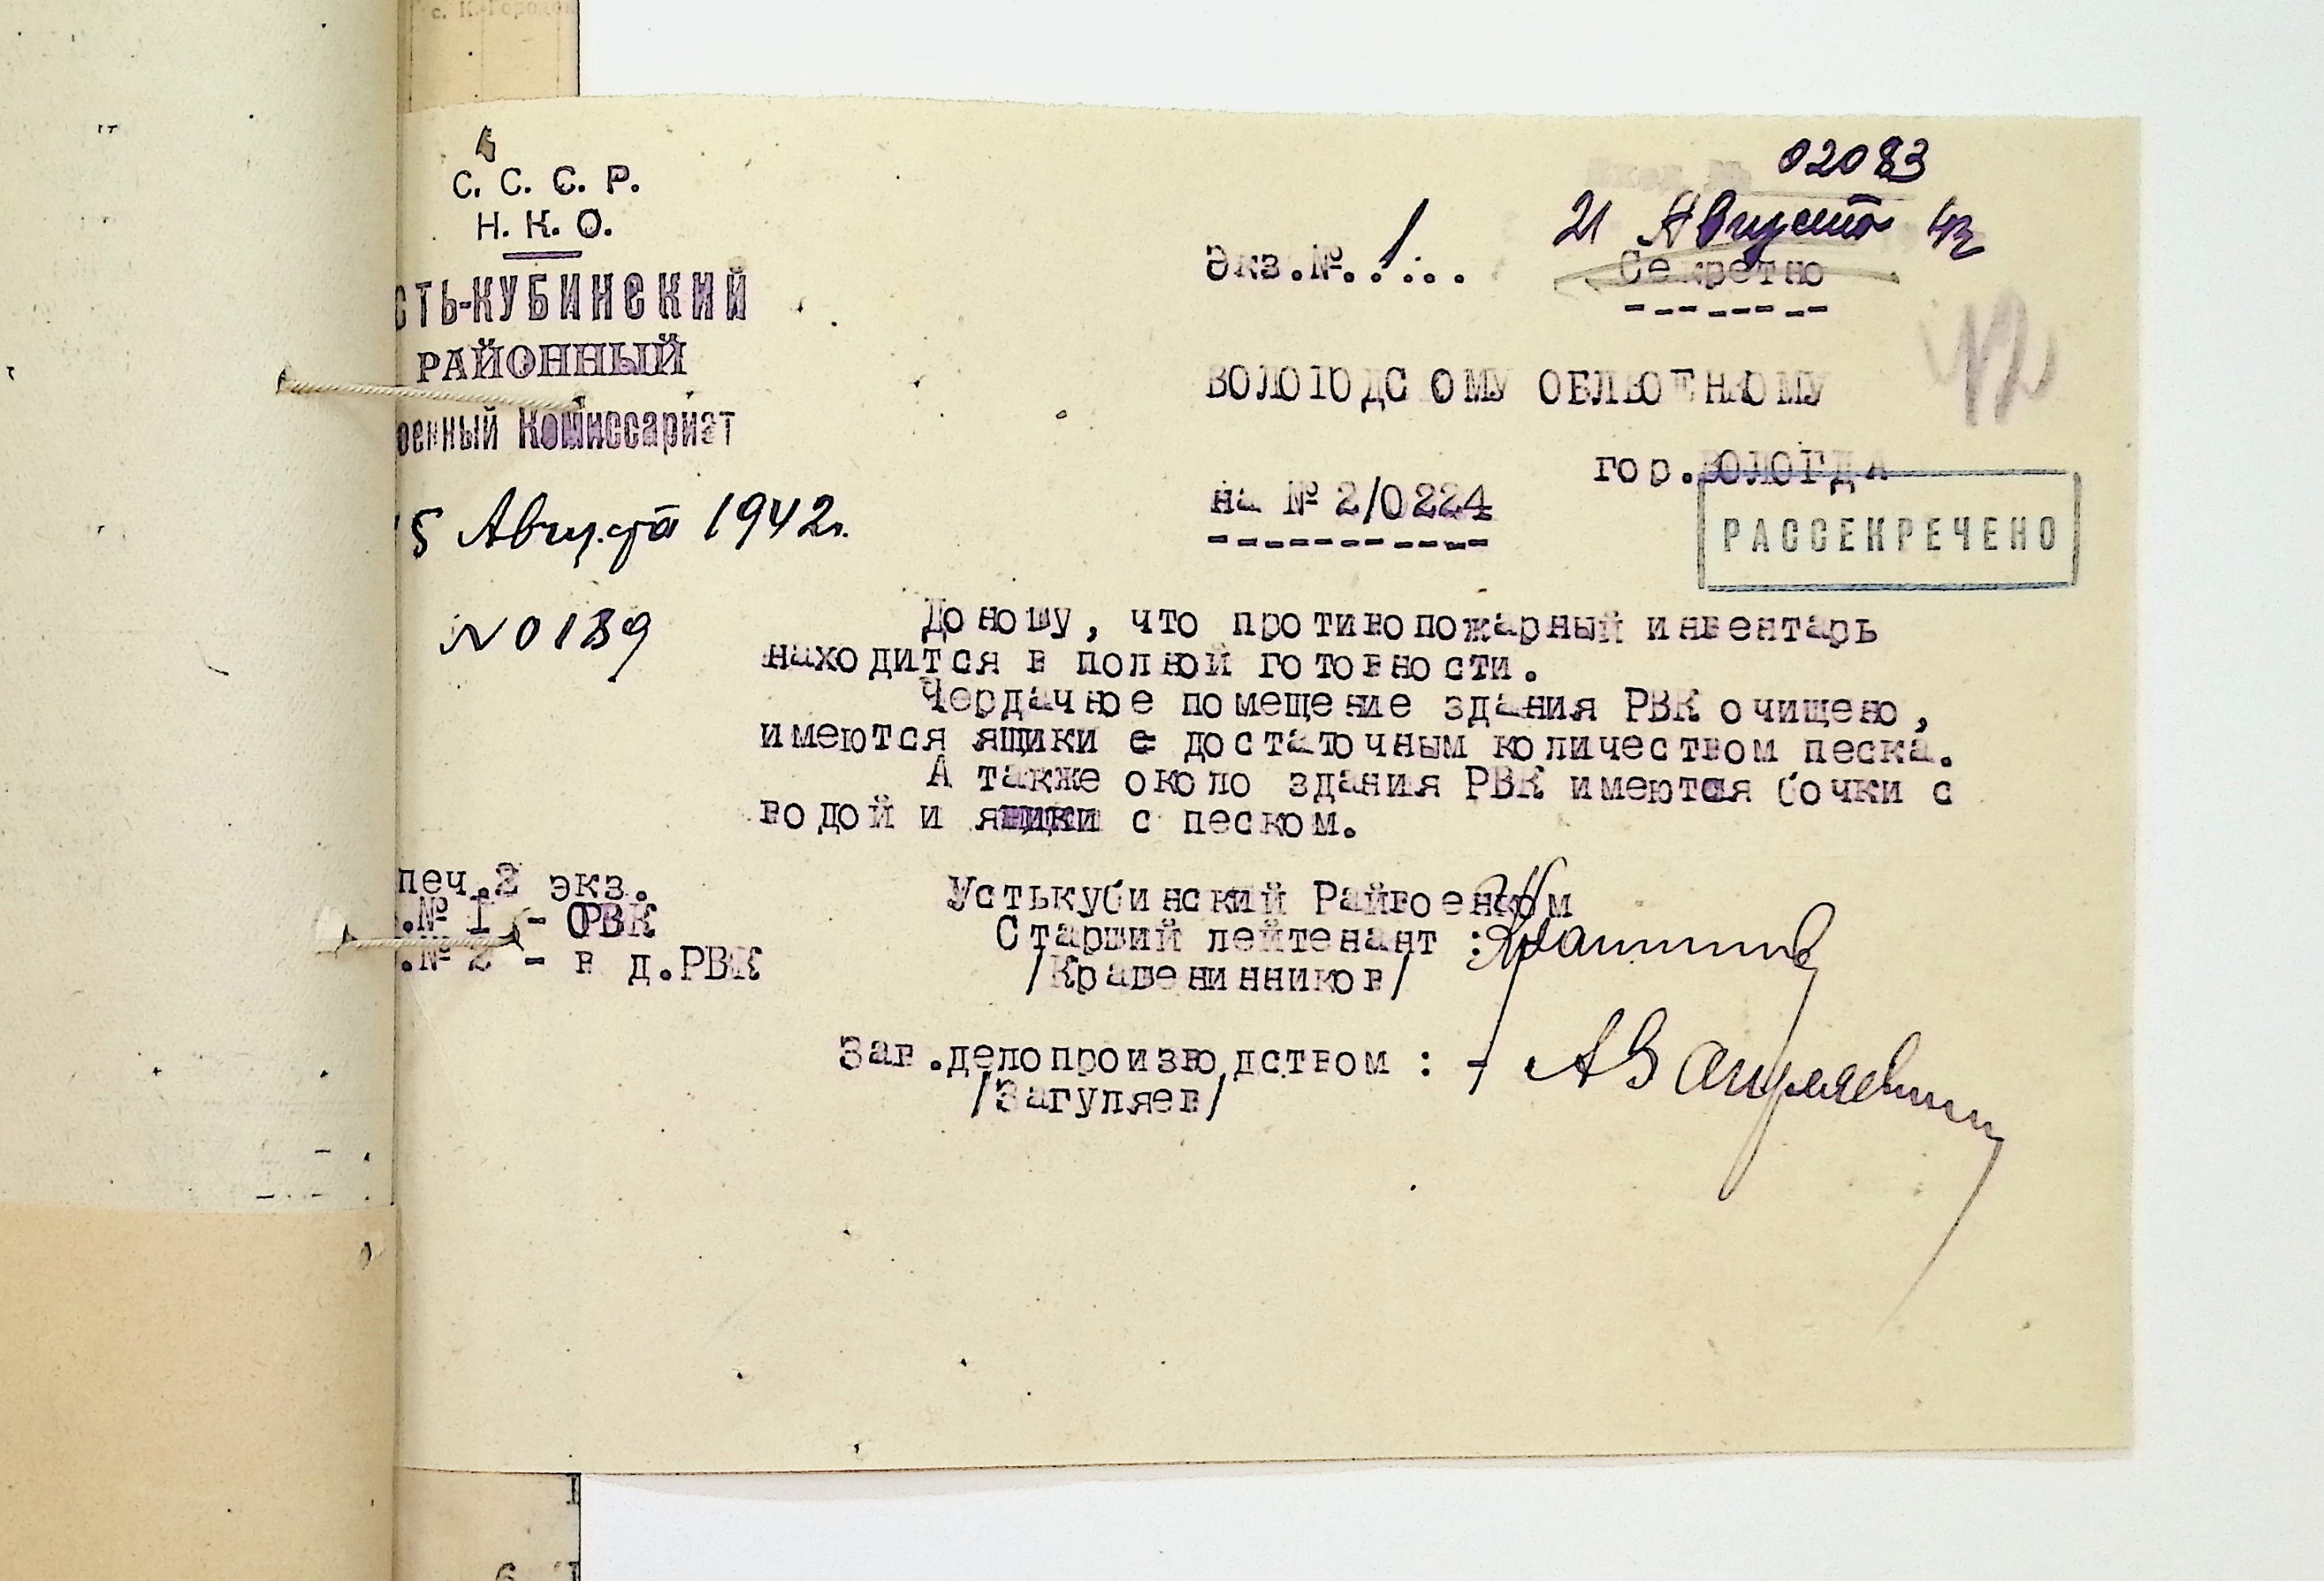 с. К-Городок
С. С. С. Р.
Н. К. О.
СТЬ-КУБИНСКИЙ
РАЙОННЫЙ
оенный Комиссариат
5 Августа 1942г.
N 0139
02083
21 Августа 42
Экз.№.1...
Секретно
ВОЛОГОДСКОМУ ОБЛВОЕНКОМУ
42
гор.ВОЛОГДА
на № 2/0224
РАССЕКРЕЧЕНО
Доношу, что противопожарный инвентарь
находится в полной готовности.
Чердачное помещение здания РВК очищено,
имеются ящики с достаточным количеством песка.
А также около здания РВК имеются бочки с
водой и ящики с песком.
печ.2 экз.
.№ I - ОВК
.№ 2 - в д.РВК
Устькубинский Райвоенком
Старший лейтенант :
/Крашенинников/
Зав.делопроизводством : -
/Загуляев/